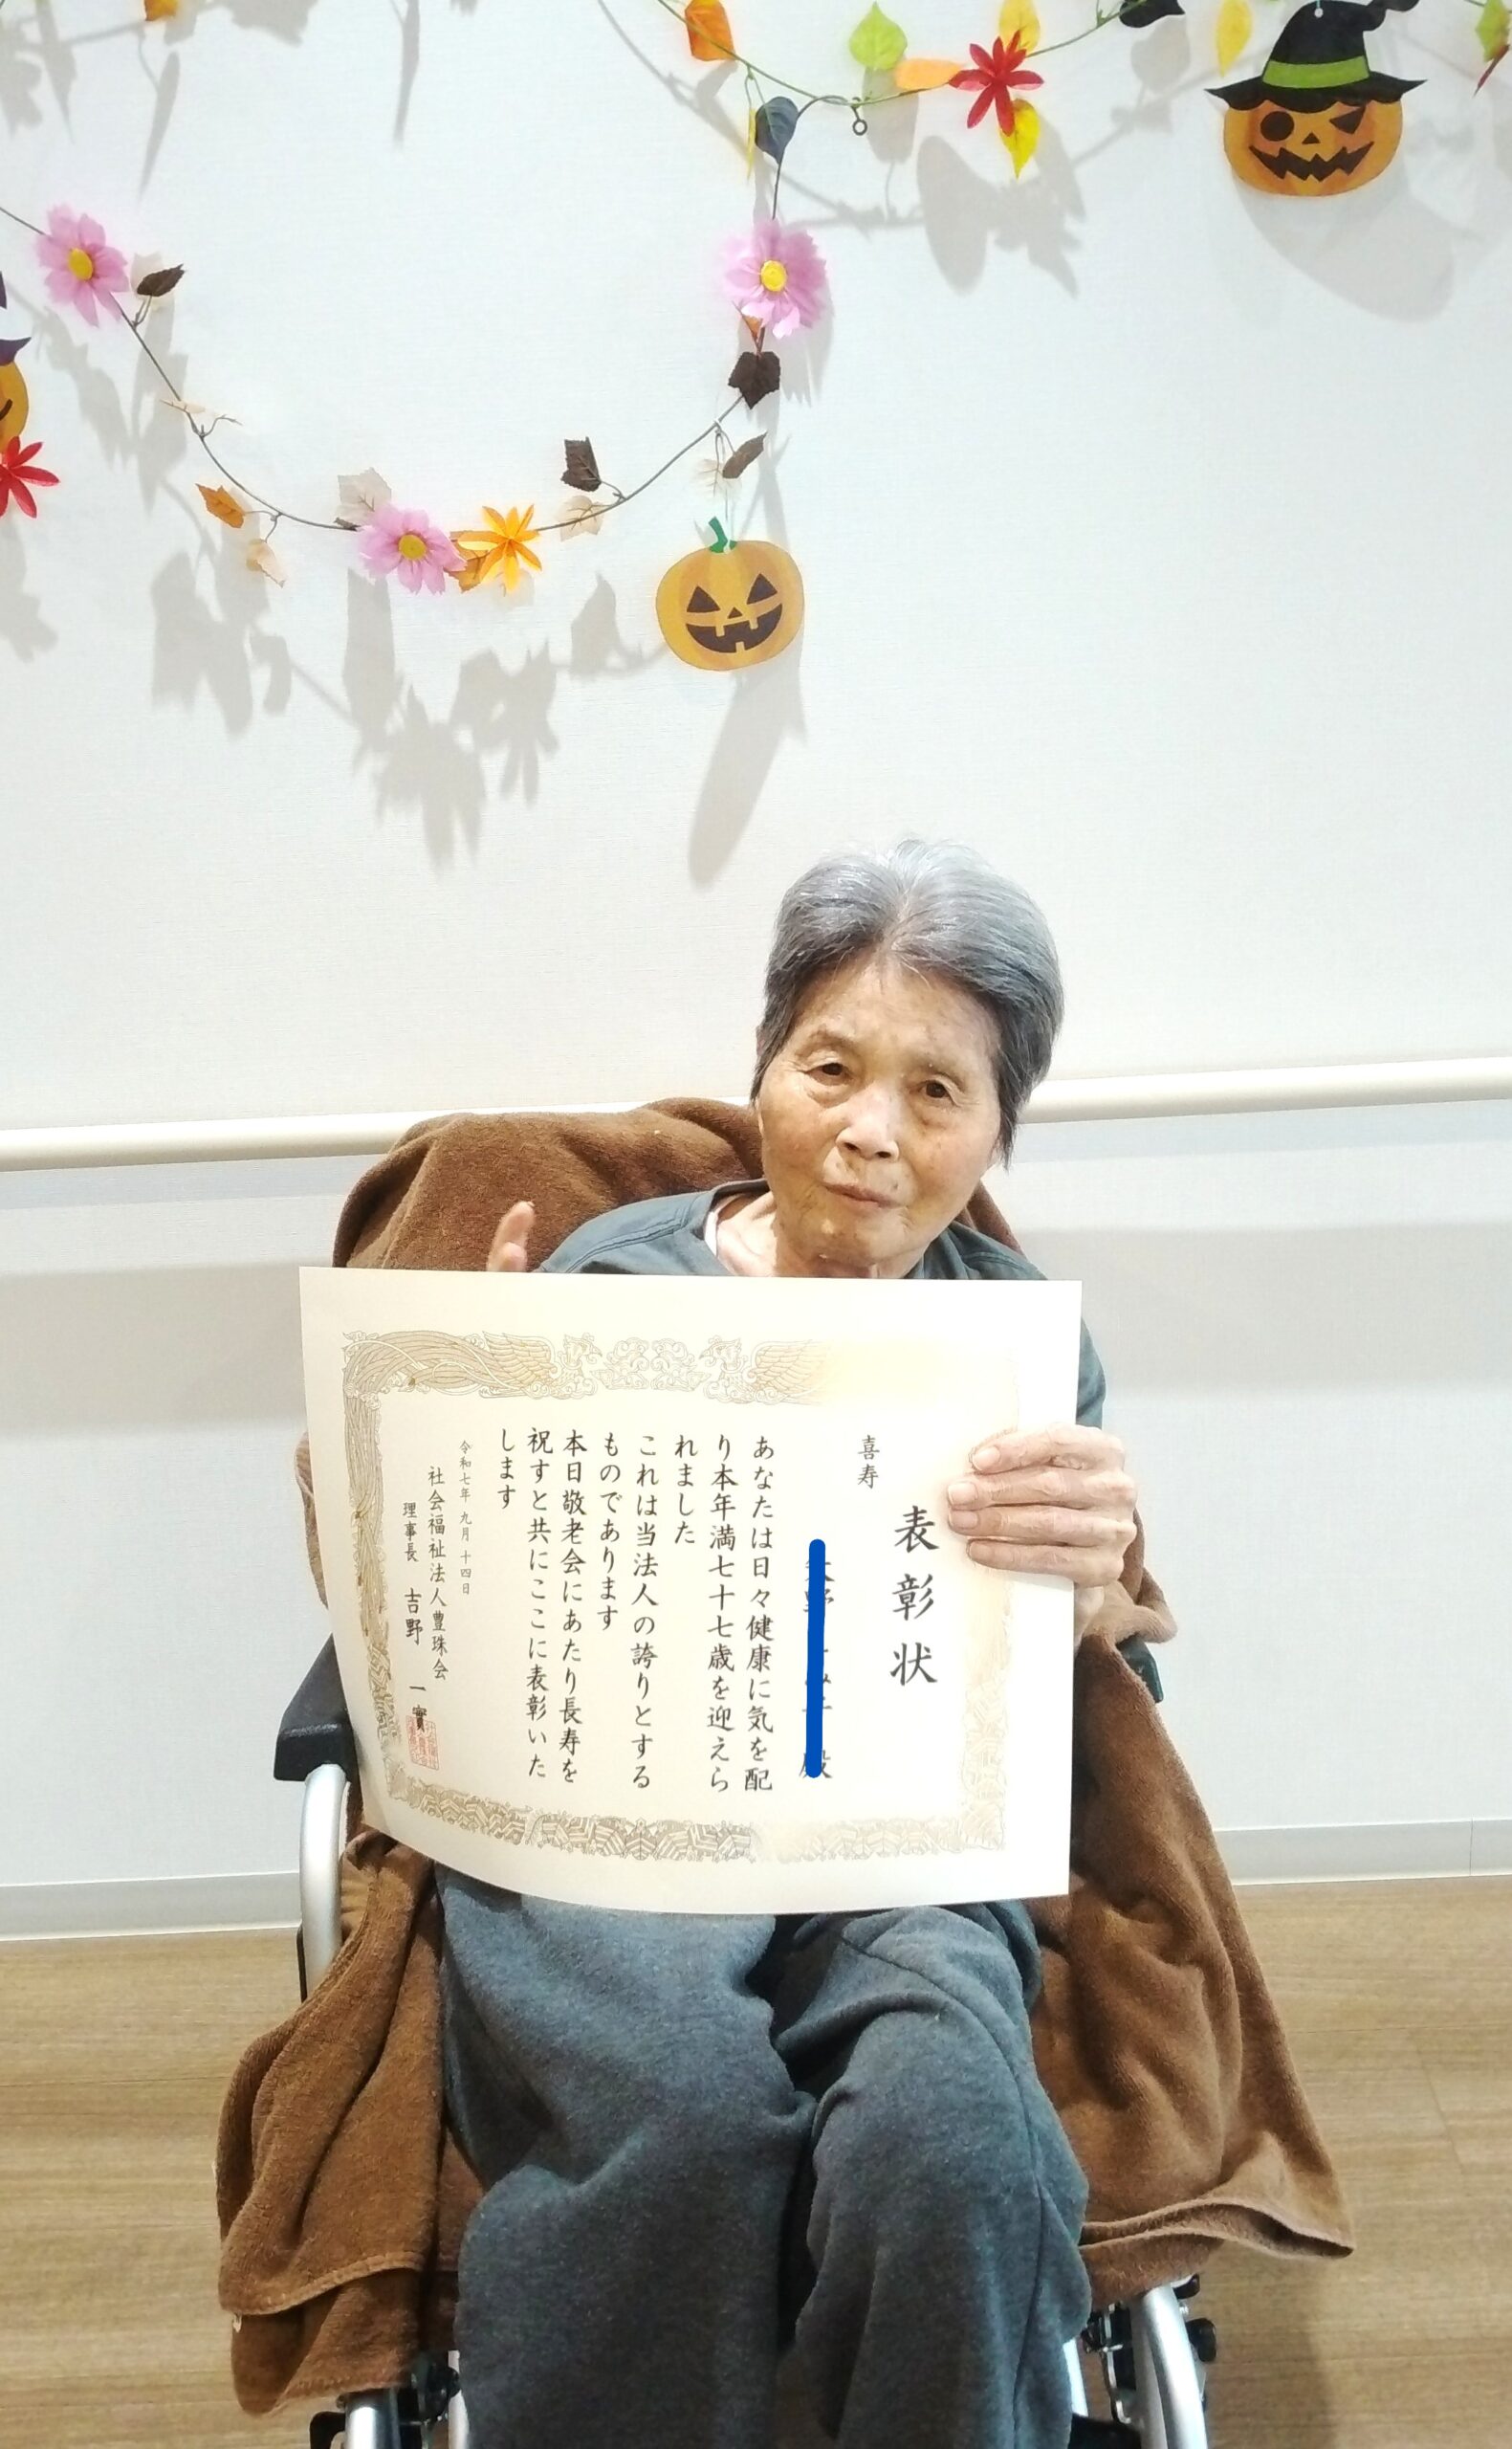 表彰状
喜寿
殿
あなたは日々健康に気を配
り本年満七十七歳を迎えら
れました
これは当法人の誇りとする
ものであります
本日敬老会にあたり長寿を
祝すと共にここに表彰いた
します
令和七年 九月 十四日
社会福祉法人豊珠会
理事長 吉野 一實